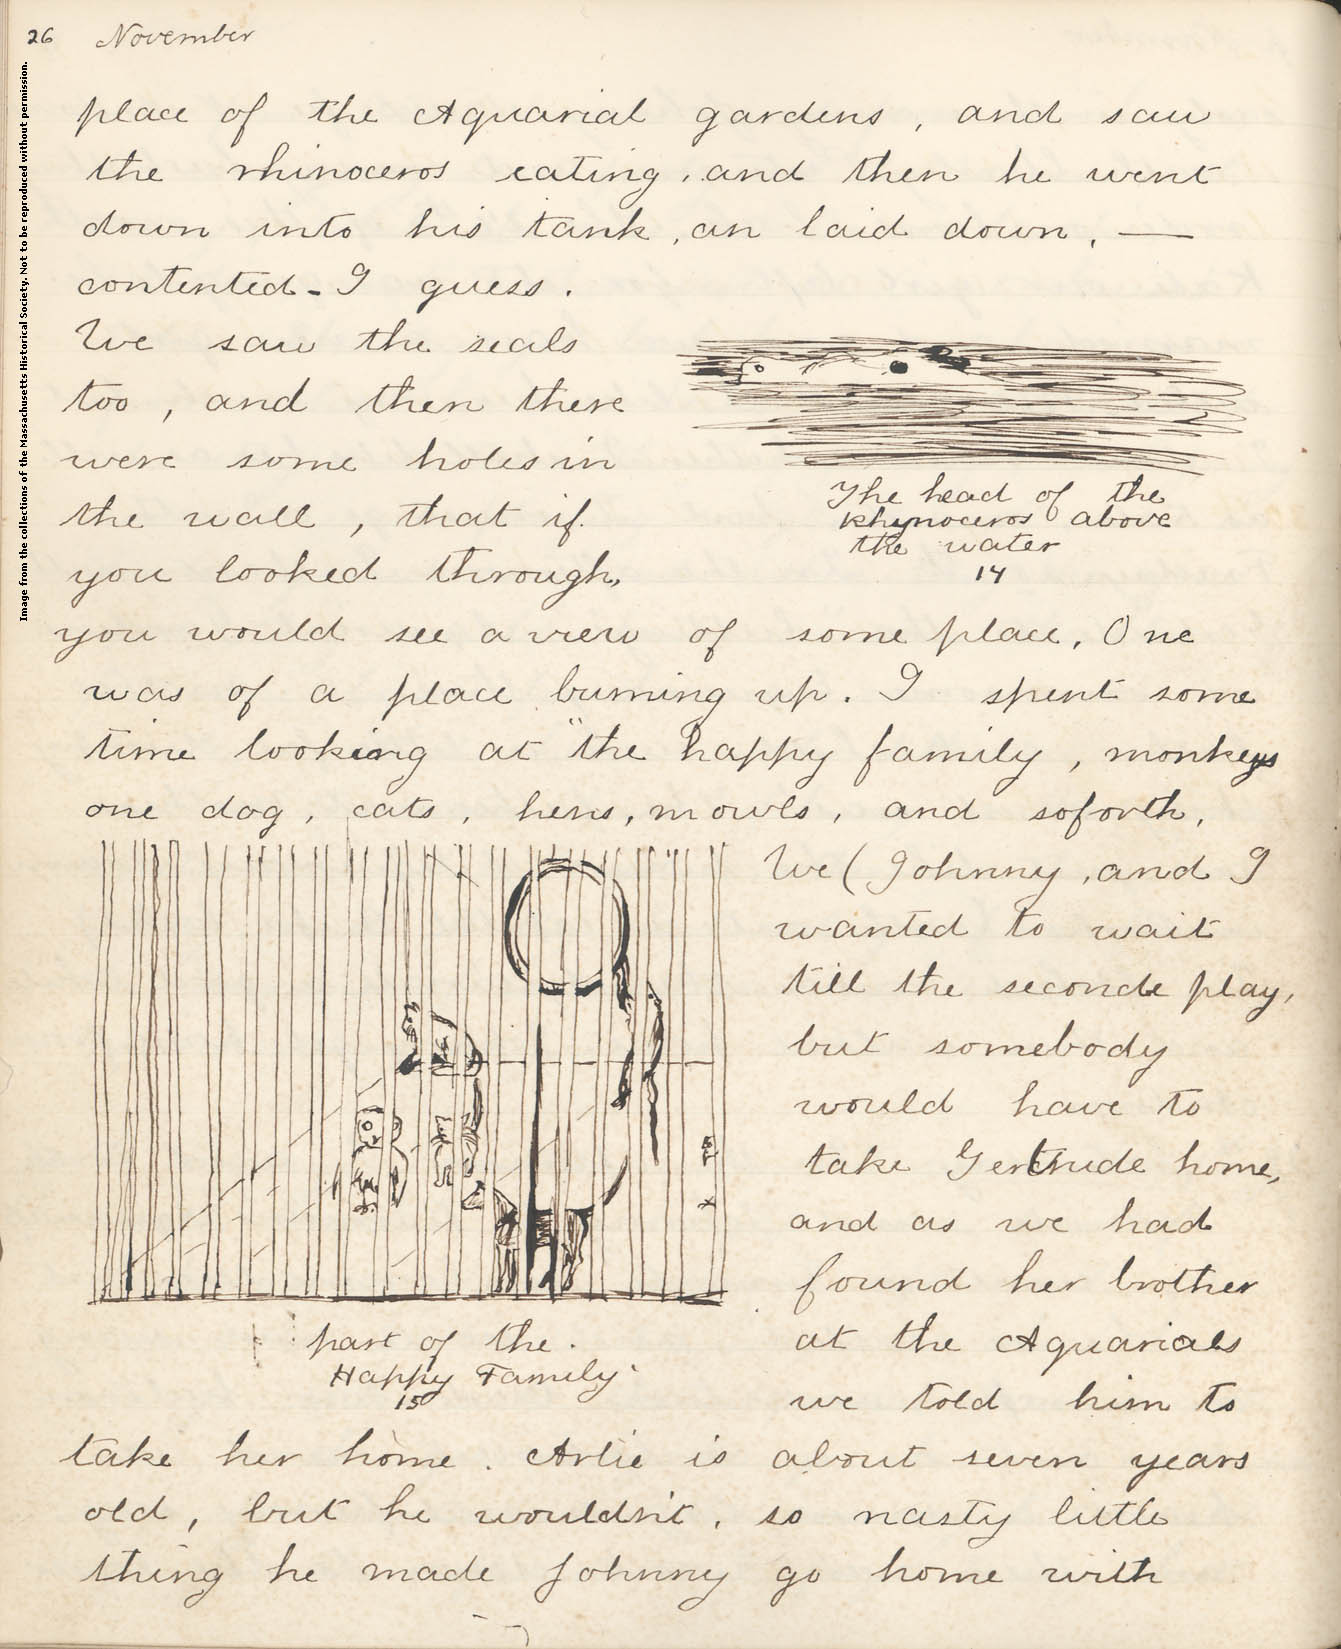 26 November
place of the Aquarial gardens, and saw
the rhinoceros eating, and then he went
down into his tank, an laid down, —
contented - I guess.
We saw the seals
too, and then there
were some holes in
the wall, that if
you looked through,
The head of the
Rhynoceros above
the water
14
you would see a view of some place. One
was of a place burning up. I spent some
time looking at "the happy family, monkeys
one dog, cats, hens, mowls, and soforth,
We (Johnny, and I
wanted to wait
till the seconde play,
but somebody
would have to
take Gertrude home,
and as we had
found her brother
at the Aquarials
we told him to
part of the
Happy Family
15
take her home. Arlie is about seven years
old, but he wouldn't, so nasty little
thing he made Johnny go home with
Image from the collections of the Massachusetts Historical Society. Not to be reproduced without permission.